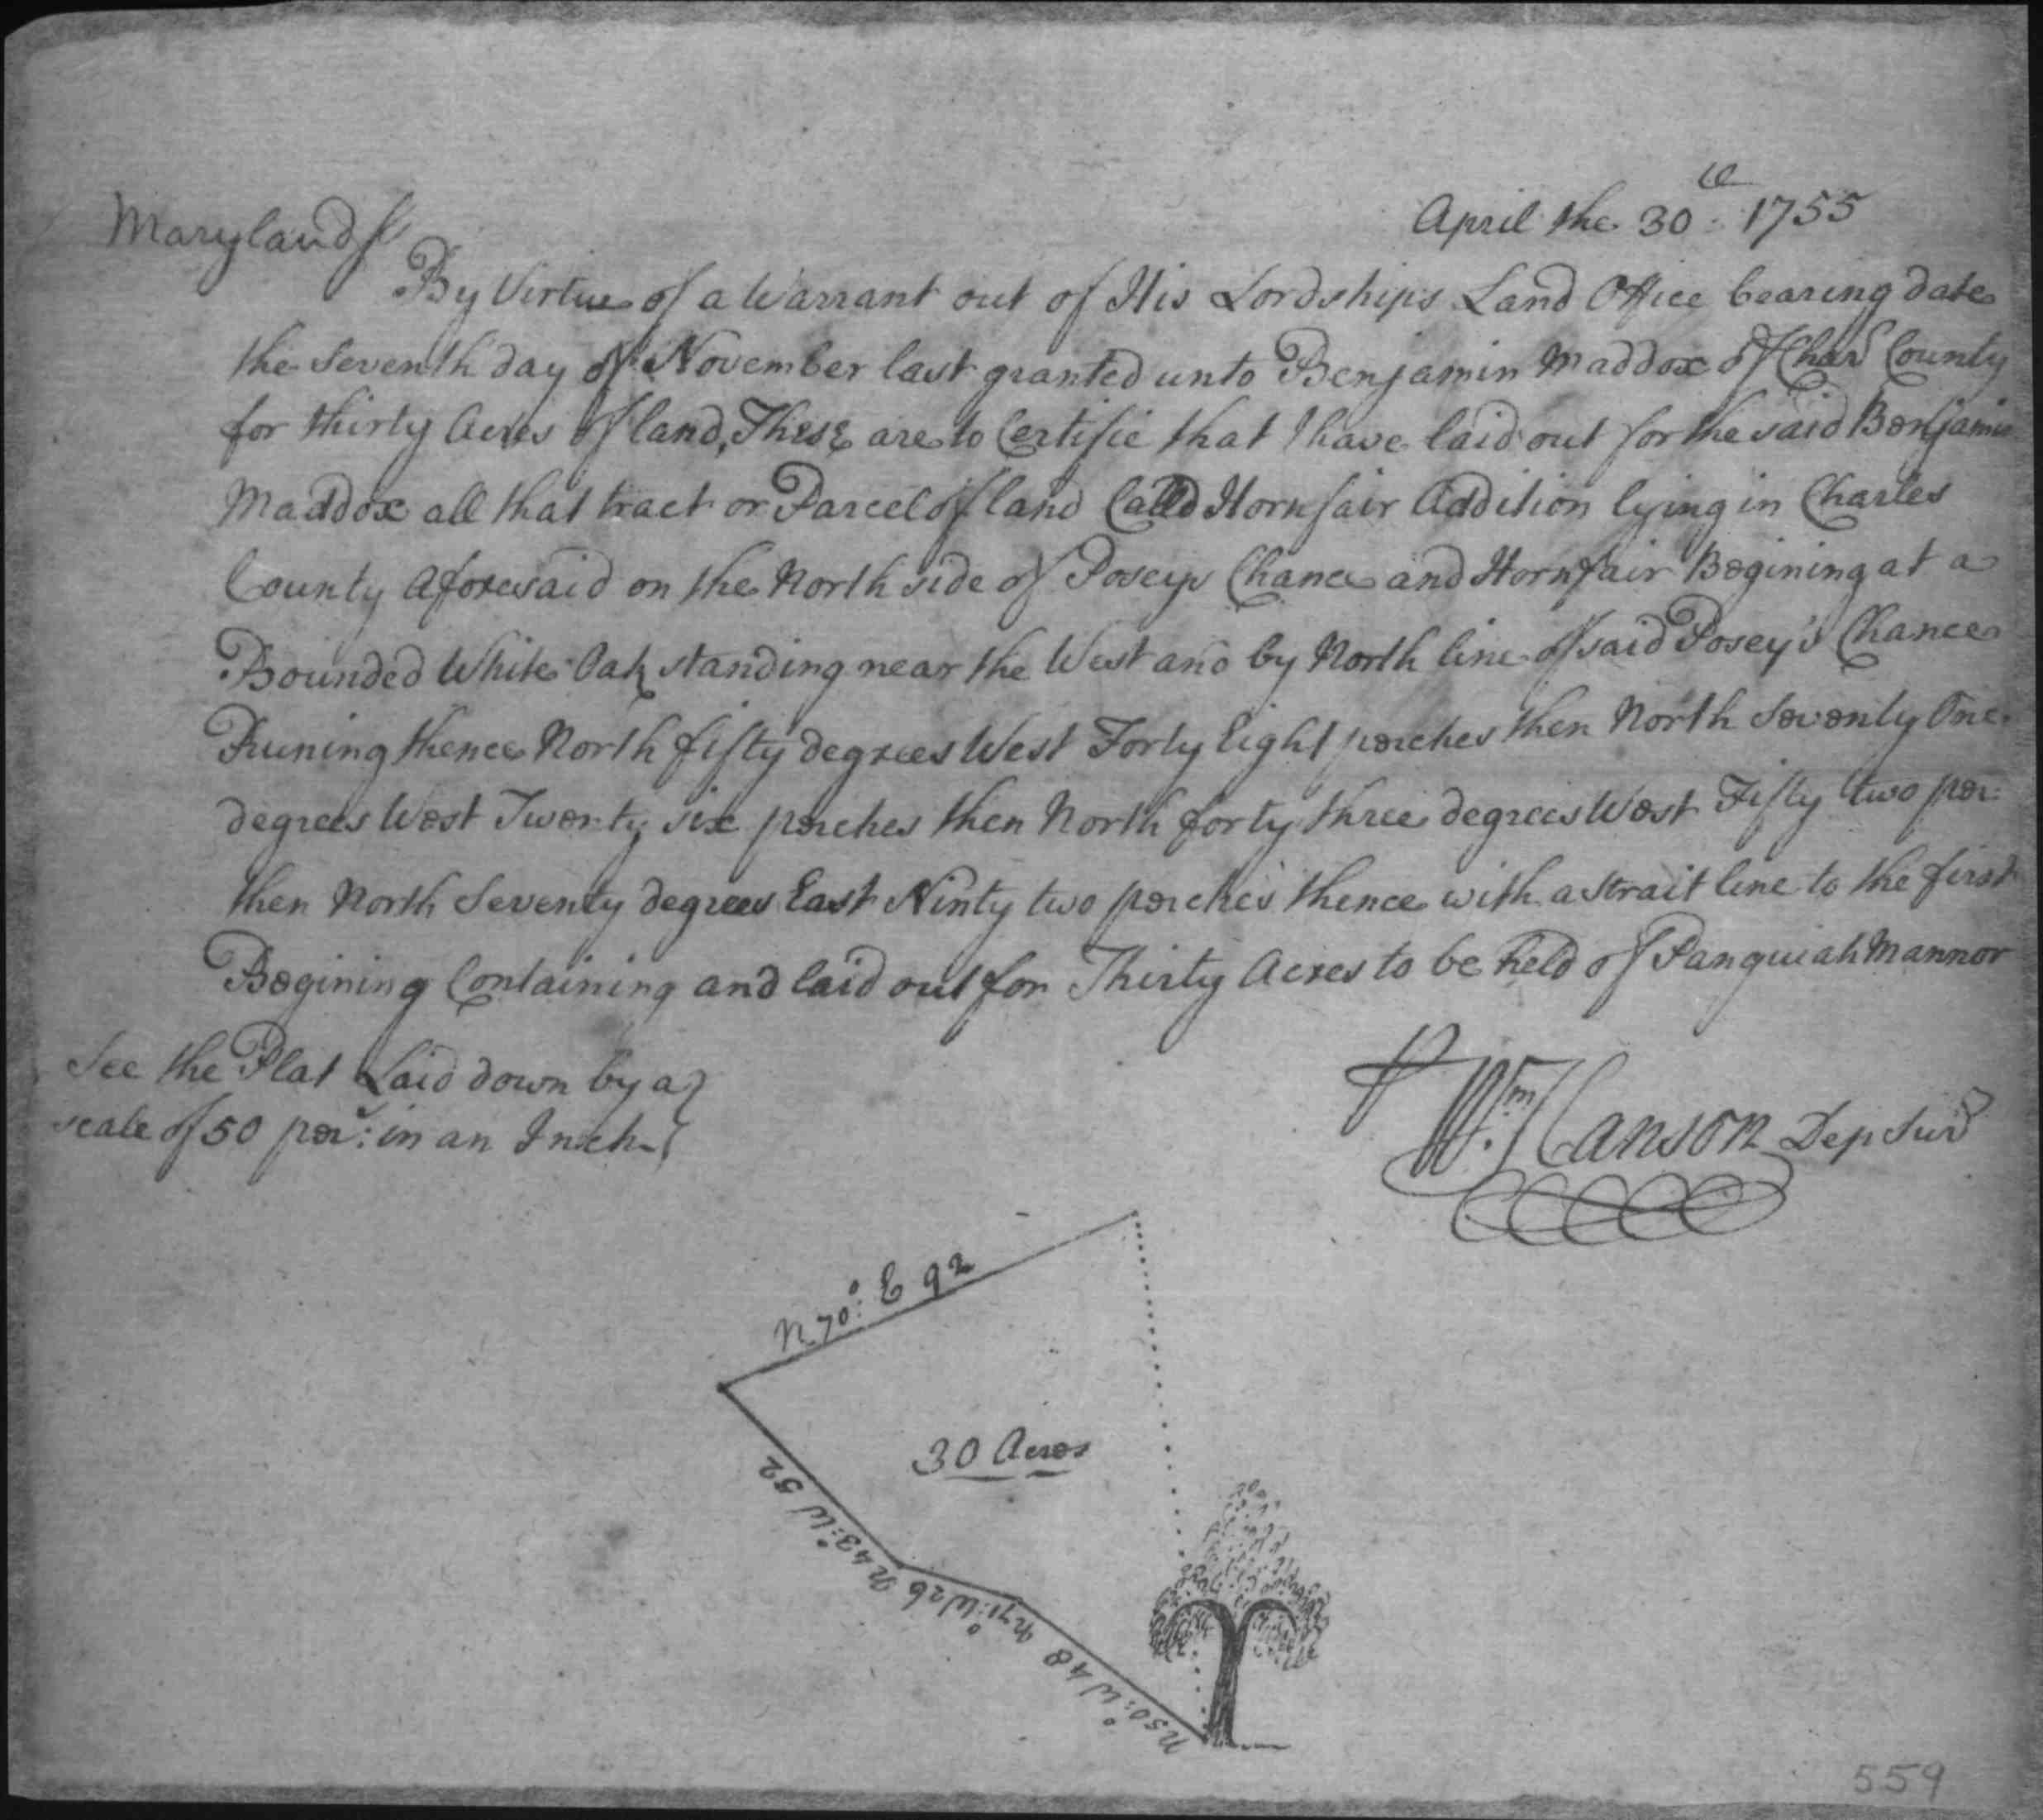 Maryland ss
April the 30th 1755
By Virtue of a Warrant out of His Lordships Land Office bearing date
the Seventh day of November last granted unto Benjamin Maddox of Chars County
for thirty Acres of land, These are to Certifie that I have laid out for the said Benjamin
Maddox all that tract or Parcel of land Calld Hornfair Addition lying in Charles
County aforesaid on the North side of Poseys Chance and Hornfair Begining at a
Bounded White Oak standing near the West and by North line of said Posey's Chance
Runing thence North fifty degrees West Forty Eight perches then North Seventy One
degrees West Twenty six perches then North forty three degrees West Fifty two per:
then North Seventy degrees East Ninty two perches thence with a strait line to the first
Begining Containing and laid out for Thirty Acres to be held of Panguiah Mannor
See the Plat Laid down by a
scale of 50 per: in an Inch
P Wm Hanson Dep Survr
N 70°: E 92
30 Acres
N 43°: W 52
N 71°: W 26
N 50°: W 48
559